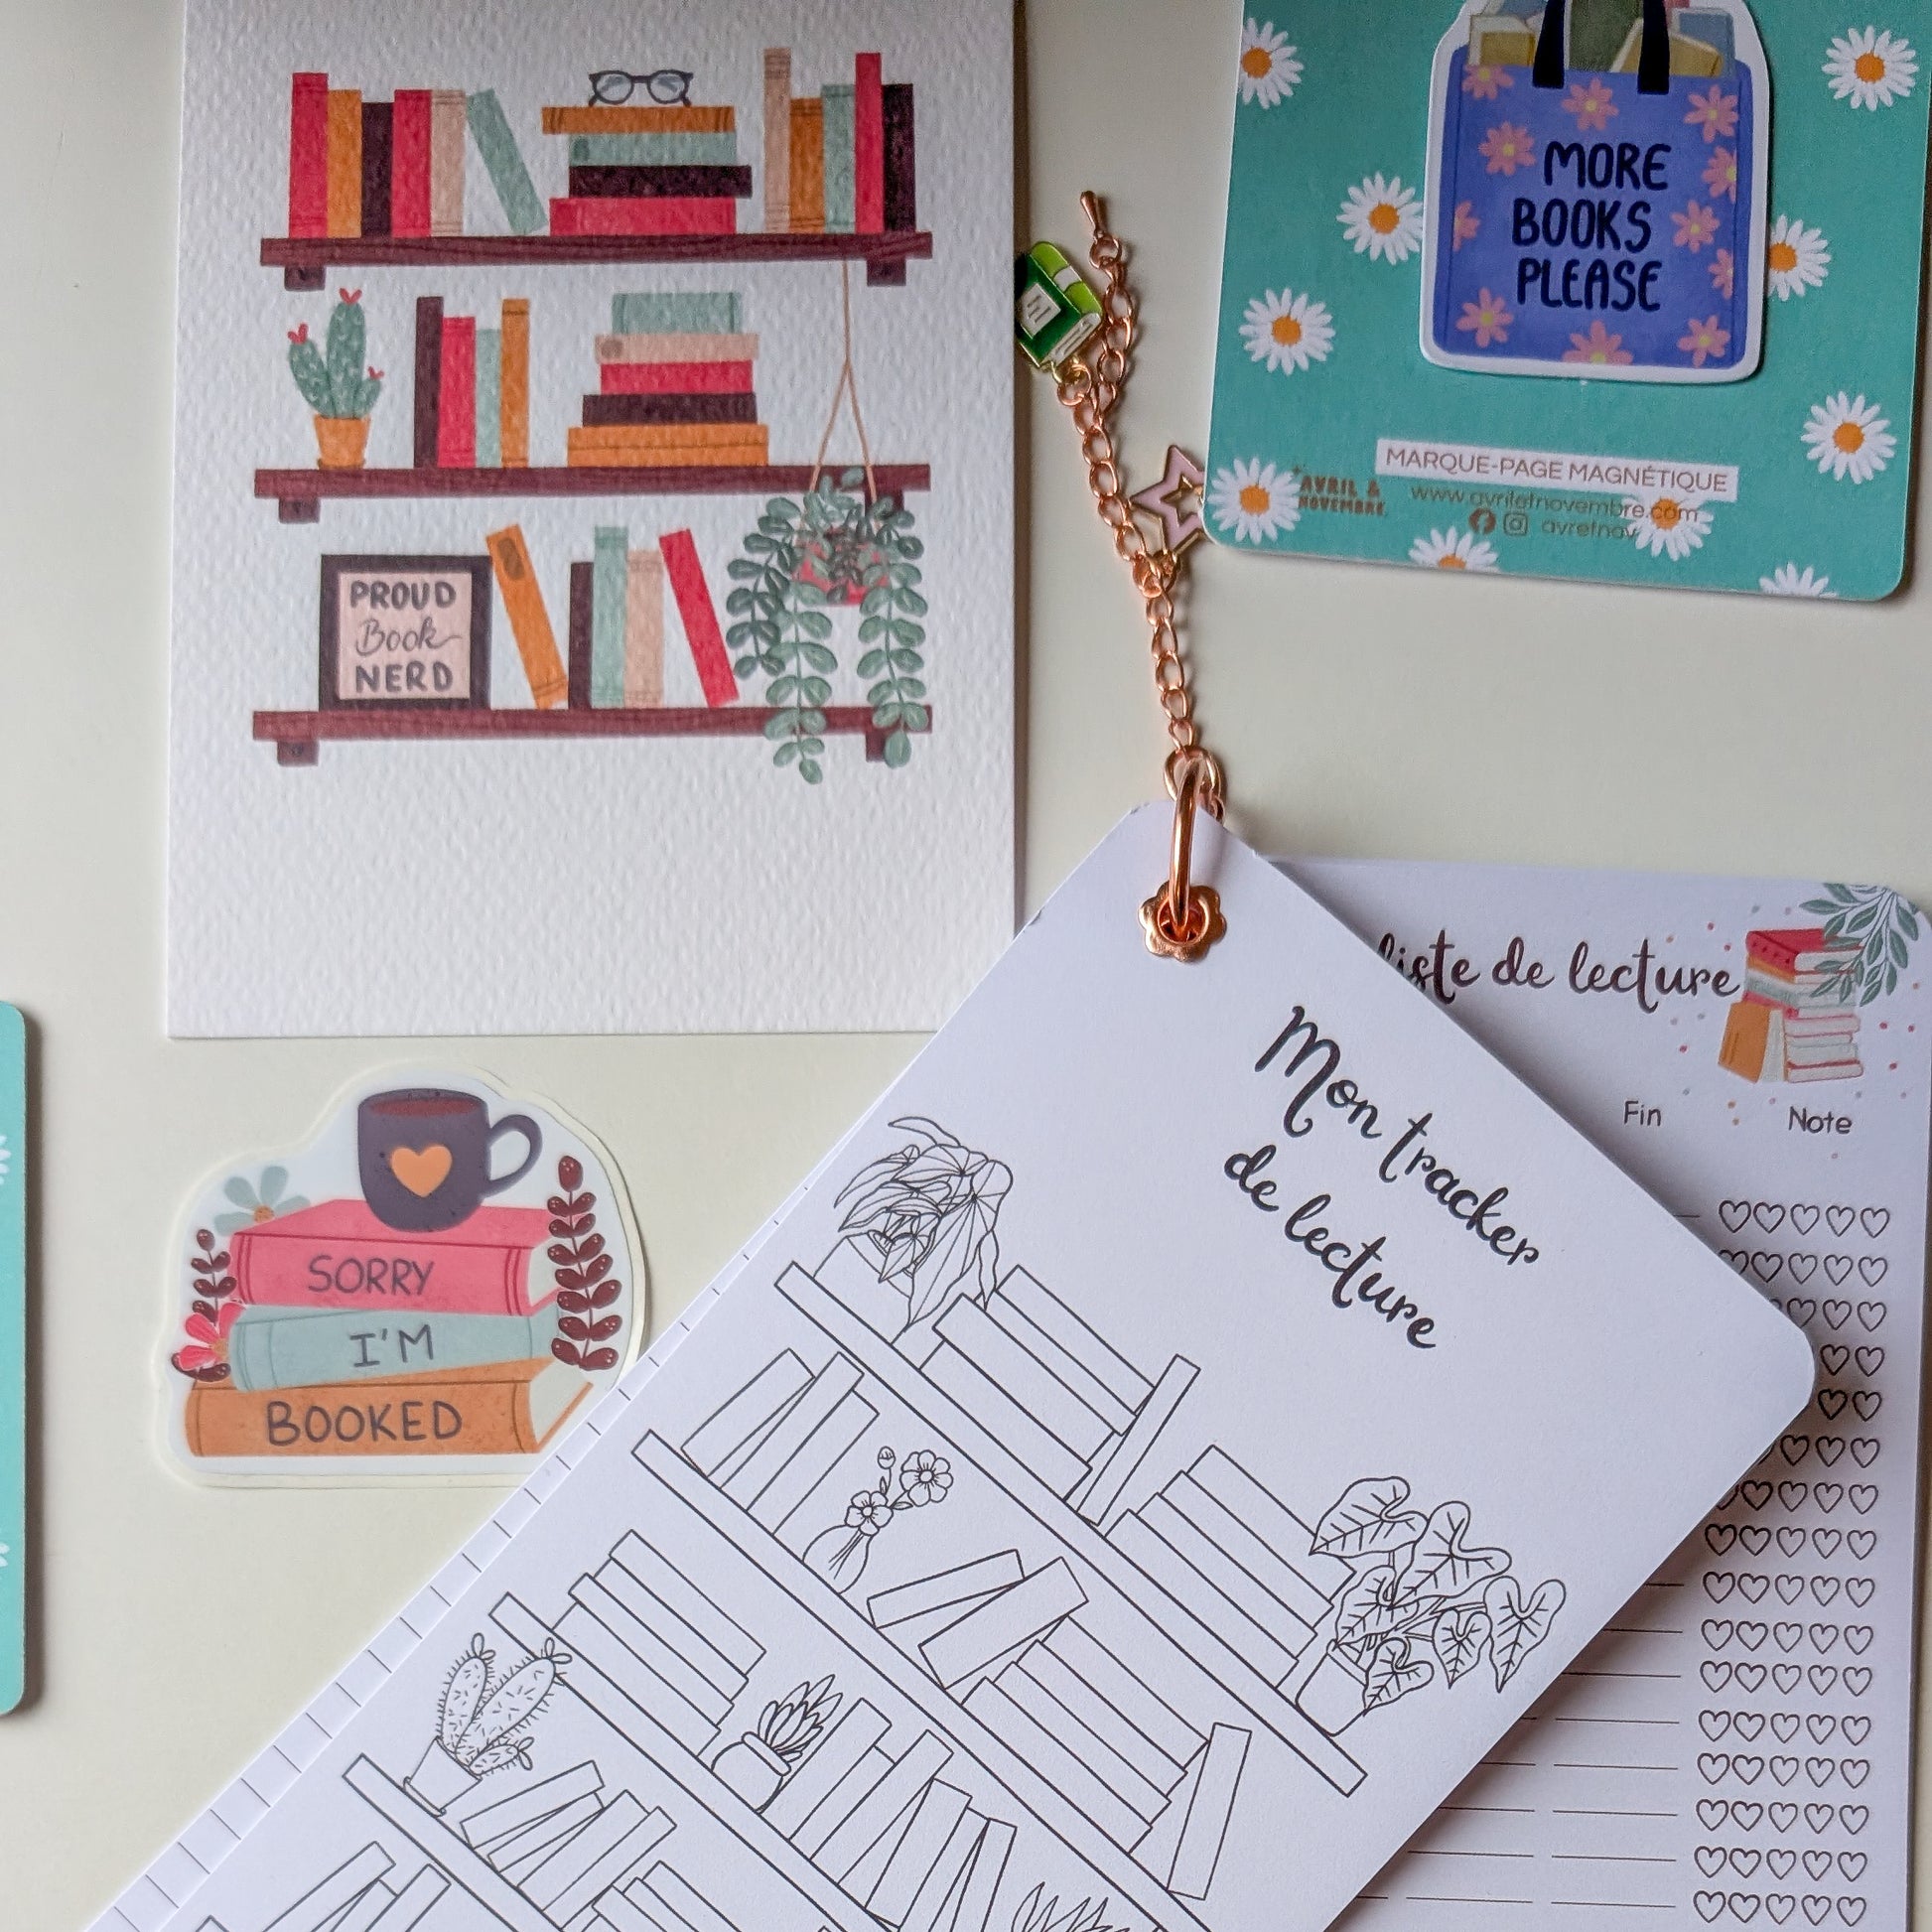 PROUD
Book
NERD
MORE
BOOKS
PLEASE
MARQUE-PAGE MAGNÉTIQUE
AVRIL &
NOVEMBRE
www.avriletnovembre.com
avretnov
SORRY
I'M
BOOKED
Mon tracker
de lecture
liste de lecture
Fin Note